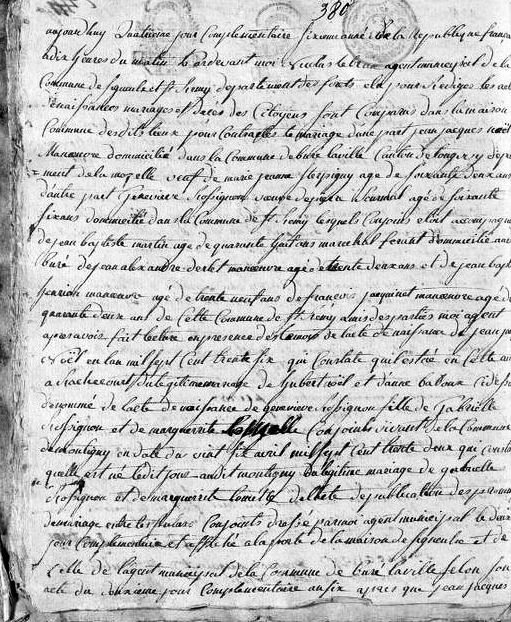 380
aujourd'huy quatrieme jour Complementaire sixieme année de la Republique françai
a dix heures du matin pardevant moi Nicolas agent municipal de la
Commune de Signeulx et St Remy departement des forets elu pour Rediger les actes
de naissances mariages et décès des Citoyens sont Comparus dans la maison
Commune desdits lieux pour Contracter le mariage d'une part jean jacques noël
Manœuvre domicilié dans la Commune de buré laville Canton de longuyon depar
ment de la mozelle veuf de marie jeanne agé de soixante deux ans
d'autre part Genevieve Rossignon veuve de agé de soixante
six ans domicilié dans la Commune de St Remy lesquels Conjoints etoit accompagnés
de jean baptiste martin age de quarante huit ans marechal ferant domicilié audit
buré de jean alexandre manœuvre agé de trente deux ans et de jean bapt
henrion manœuvre agé de trente neuf ans de francois jacquinet manœuvre agé de
quarante deux ans de Cette Commune de St Remy amis des parties moi agent
apres avoir fait lecture en presence des temoins de lacte de naissance de jean jac
noël en lan mil sept Cent trente six qui Constate qu'il est né en Celle an
a du legitime mariage de hubert noël et d'anne
denommé de lacte de naissance de genevieve Rossignon fille de Gabrielle
Rossignon et de marguerite Conjoints vivant de la Commune
de montigny en date du vint six avril mil sept Cent trente deux qui constate
quelle est né ledit jour audit montigny du legitime mariage de gabrielle
Rossignon et de marguerite de lacte de publication des promes
de mariage entre les futurs Conjoints dressé par moi agent municipal le deux
jour Complementaire et affiché a la porte de la maison de Signeulx et de
Celle de l'agent municipal de la Commune de buré laville selon son
acte du deuxieme jour Complementaire an six apres que jean jacques